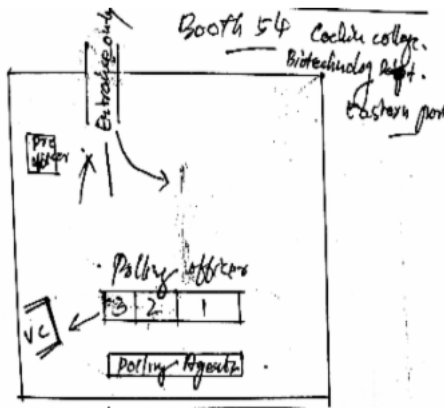 Booth 54
Cochin college.
Biotechnology Dept.
Eastern port
Entrance only
Pre officer
Polling officer
3 2 1
VC
Polling Agents